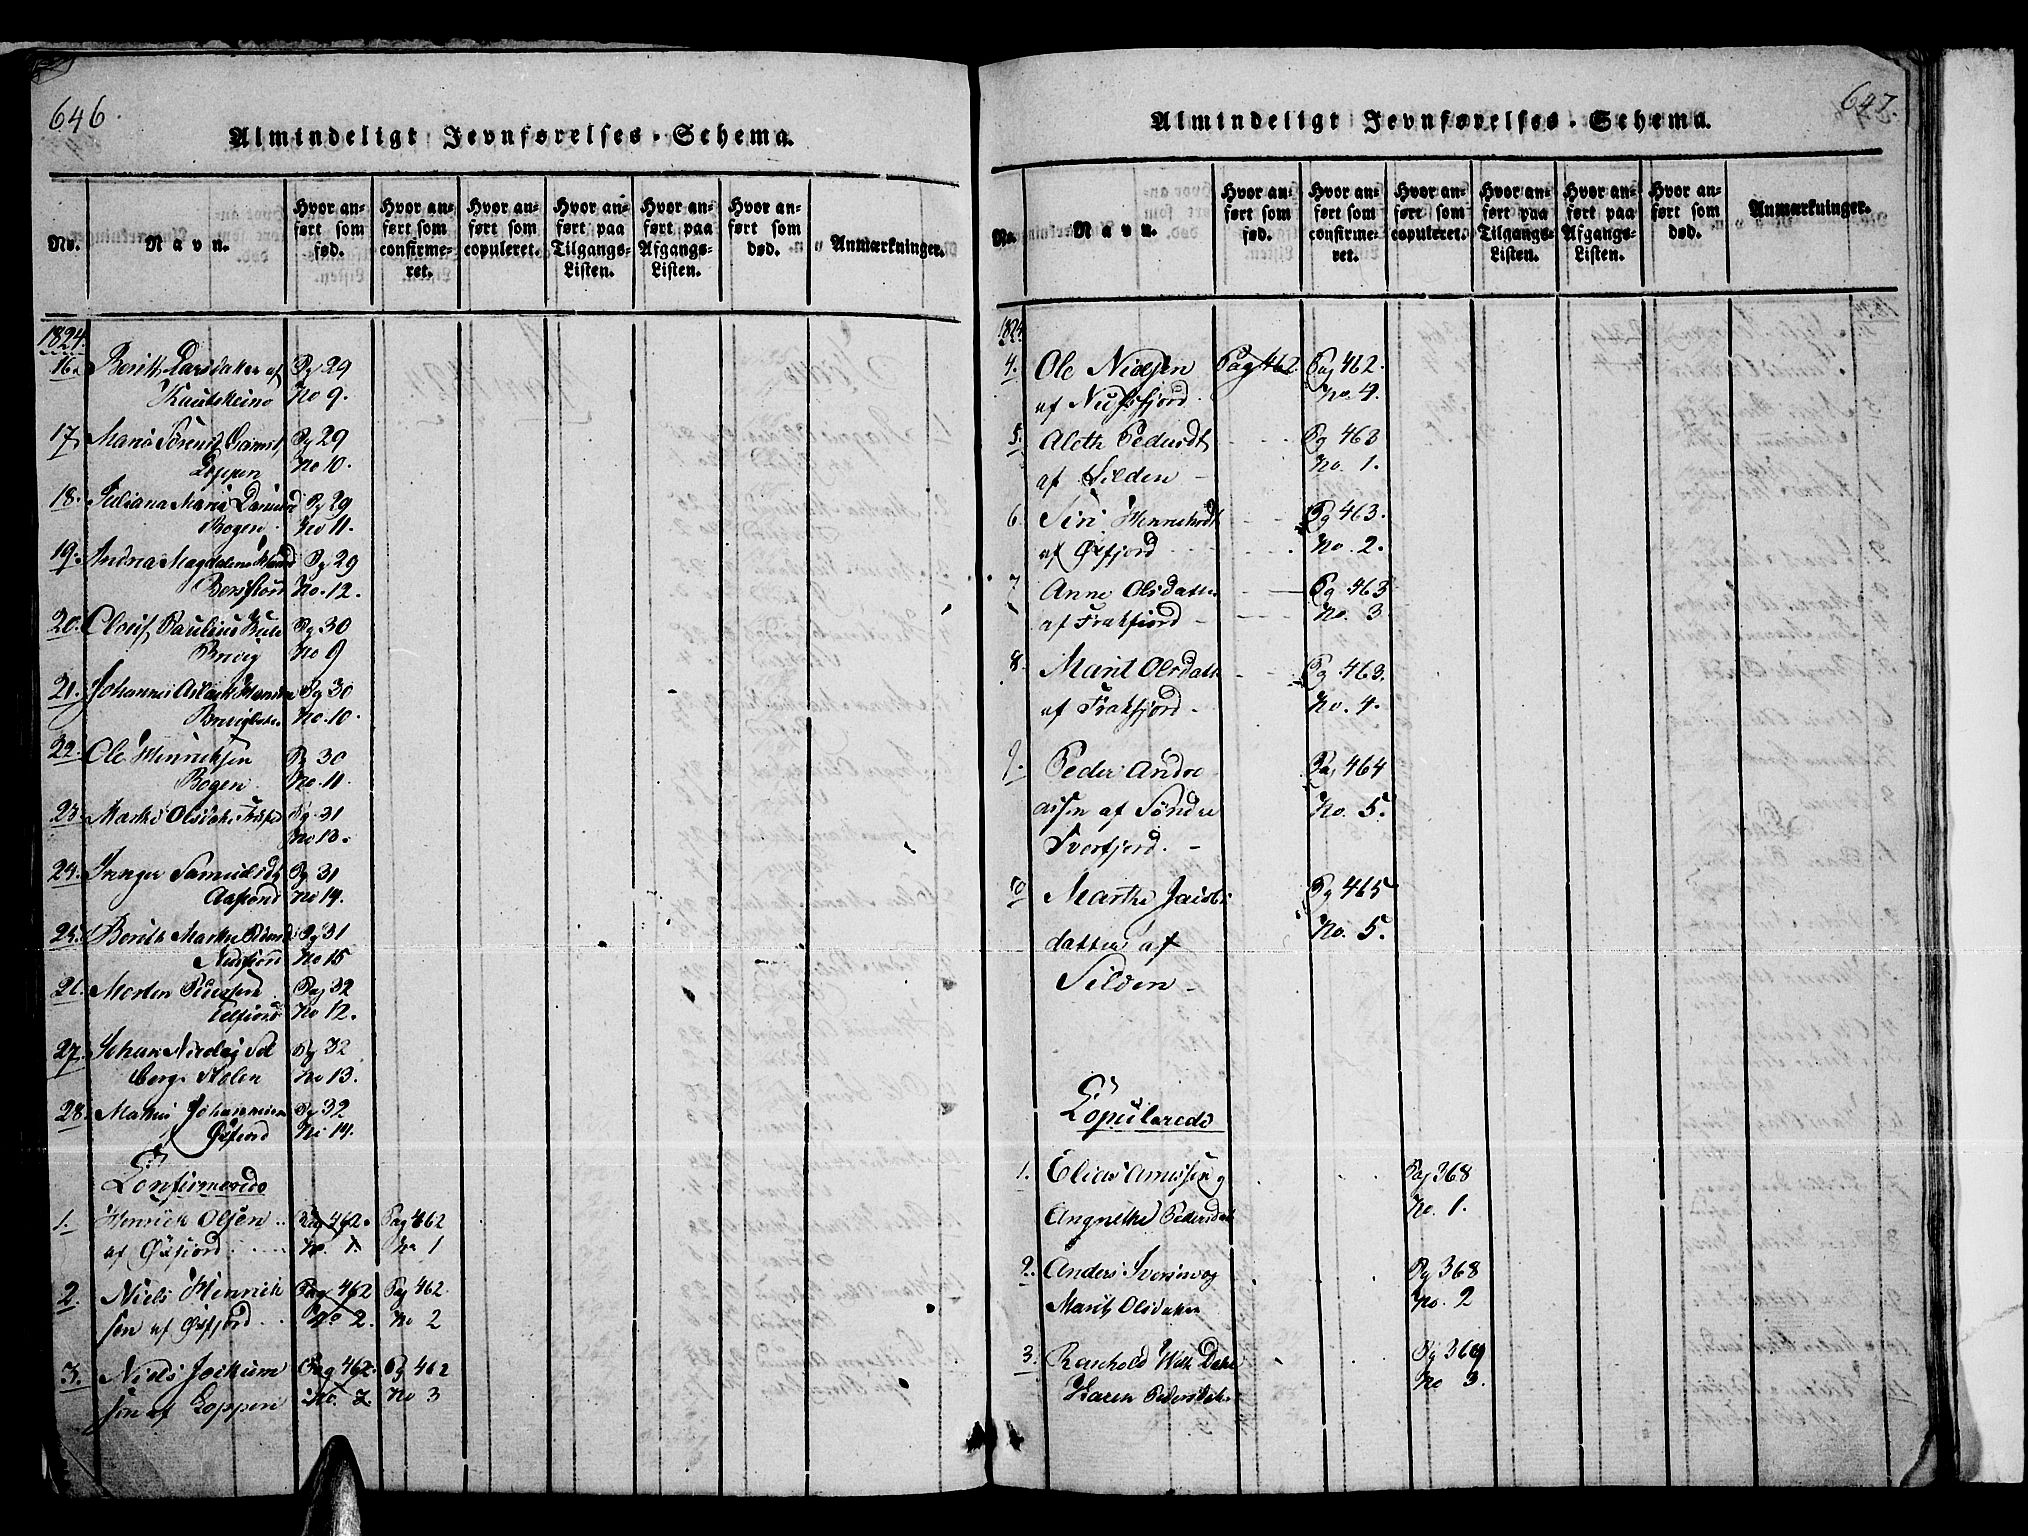 646.
Almindeligt Jevnførelses-Schema.
No.
Navn.
Hvor anført som fød.
Hvor anført som confirmeret.
Hvor anført som copuleret.
Hvor anført paa Tilgangs-Listen.
Hvor anført paa Afgangs-Listen.
Hvor anført som død.
Anmærkninger.
1824.
16. Berith Larsdatter af Pg 29
Kautokeino No 9.
17. Maria Pg 29
Loppen No 10.
18. Juliana Maria Pg 29
Bogen No 11.
19. Magdalena Pg 29
No. 12.
20. Paulius Pg 30
No 9
21. Johannes Pg 30
No. 10.
22. Ole Henriksen Pg 30
Bogen No. 11.
23. Marthe Pg 31
No 13.
24. Inger Samuelsdt Pg 31
No 14.
25. Berith Marthe Pg 31
No 15
26. Morten Pedersen Pag 32
No 12.
27. Johan Nicolaj Sol Pg 32
berg No 13.
28. Mathis Johannesen Pg 32
Øxfjord No 14.
Confirmerede
1. Henrich Olsen Pag 462. Pag 462
af Øxfjord No. 1. No 1
2. Niels Henrich Pag 462 Pag 462
sen af Øxfjord No 2. No 2
3. Niels Jochum Pag 462. Pg 462
sen af Loppen No. 2 No 3
647.
Almindeligt Jevnførelses-Schema.
No.
Navn.
Hvor anført som fød.
Hvor anført som confirmeret.
Hvor anført som copuleret.
Hvor anført paa Tilgangs-Listen.
Hvor anført paa Afgangs-Listen.
Hvor anført som død.
Anmærkninger.
4. Ole Nielsen Pag 462 Pag 462.
af Nufsfjord. No. 4.
5. Aleth Pedersdt Pg 463
af Silden No. 1.
6. Siri Pg 463.
af Øxfjord No. 2.
7 Anne Olsdatter Pg 463
af Frakfjord No. 3.
8. Marit Olsdatt Pg 463.
af Frakfjord No. 4.
9. Peder Andre Pag 464
assen af Søndre No. 5.
Tverfjord.
10 Marthe Jacobs Pg 465
datter af No. 5.
Silden
Copulerede
1. Elias Arnessen og Pag 368
Angnethe Pedersdat No. 1.
2. Anders Iversen og Pg 368
Marith Olsdatter No. 2
3. Reinhold With Pg 369
Karen Pedersdatter No 3.